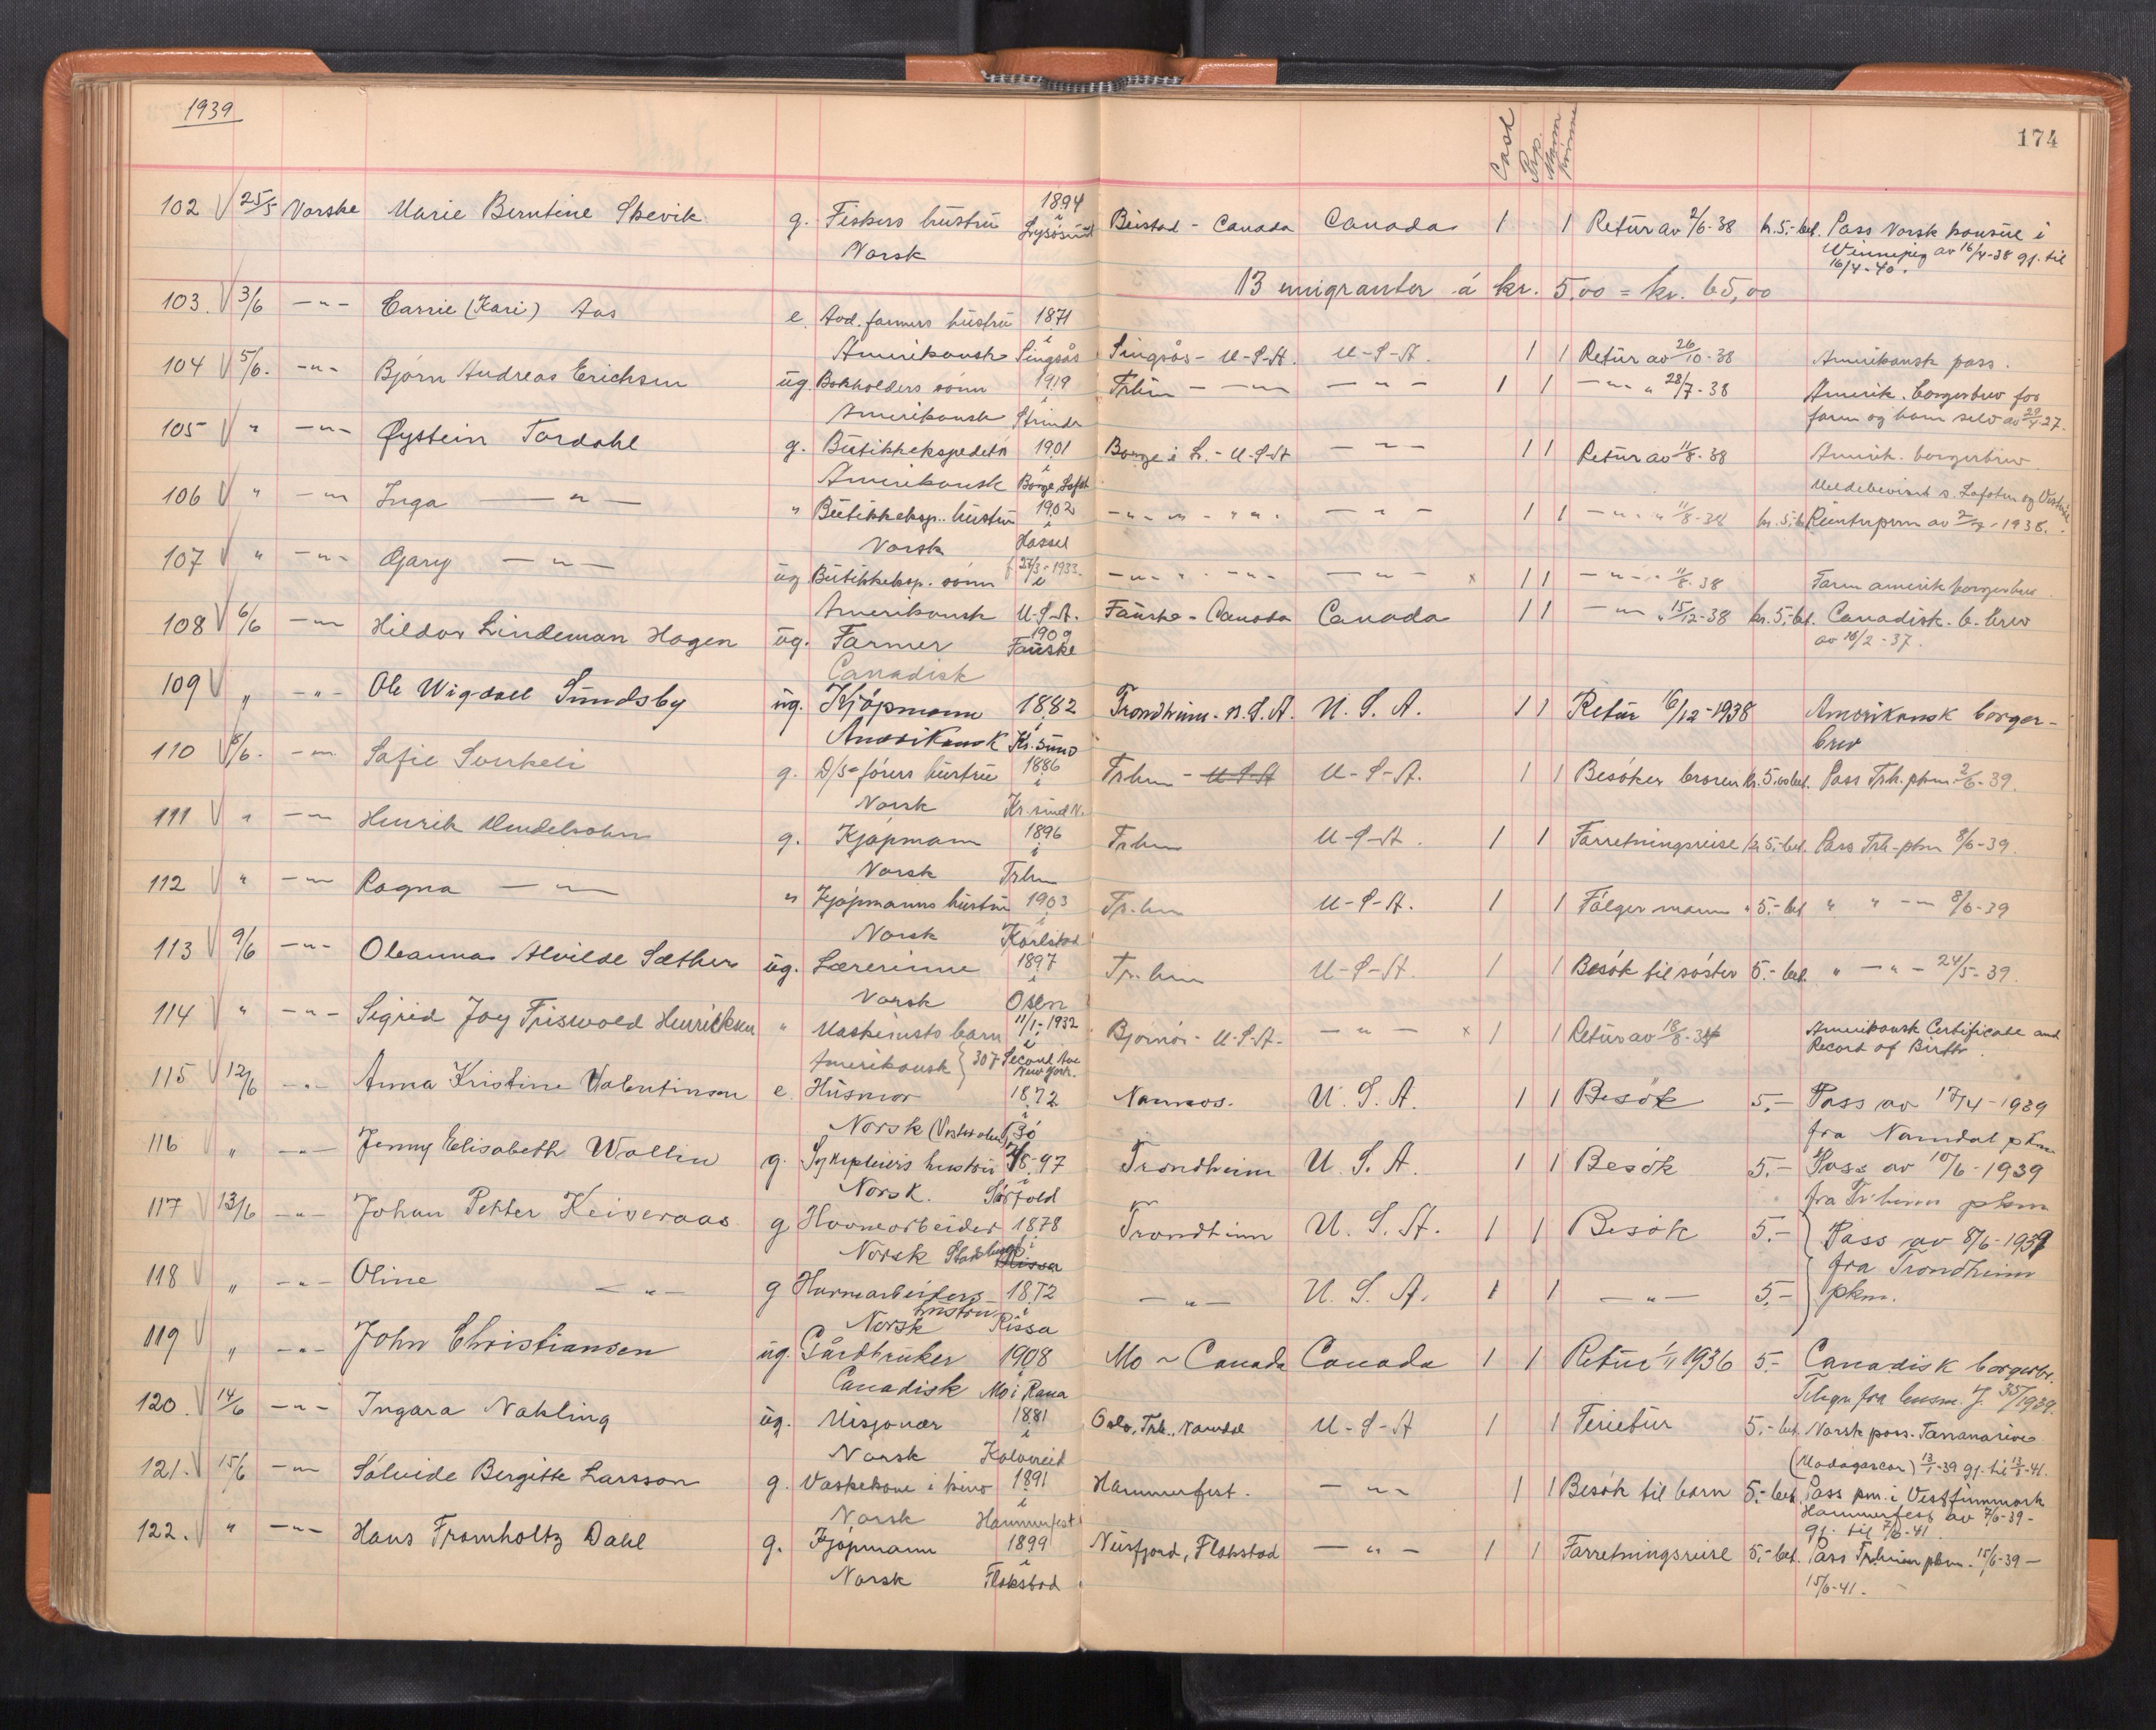 1939
174
Cash Prp. Mann Kvinne
102 √ 25/5 Norske Marie Berntine Skevik g. Fiskers hustru 1894 i Lysøsund Beistad - Canada Canada 1 1 Retur av 2/6-38 kr. 5,- bet. Pass Norsk konsul i
Norsk Winnipeg av 16/4-38 gj. til
16/4-40.
13 emigranter á kr. 5,00 = kr. 65,00
103. √ 3/6 -"- Carrie (Kari) Aas e. Avd. farmers hustru 1871 i
Amerikansk Singsås Singsås - U-S-A. U-S-A. 1 1 Retur av 26/10-38 Amerikansk pass.
104 √ 5/6. -"- Bjørn Andreas Erichsen ug. Bokholders sønn 1919 i Trhm - -"- -"- 1 1 -"- " 28/7-38 Amerik. borgerbrev for
Amerikansk Strinda farm og barn selv av 29/4-27.
105 √ " -"- Øystein Tordahl g. Butikkekspeditør 1901 i Borge i L. - U-S-A -"- 1 1 Retur av 11/8-38 Amerik. borgerbrev
Amerikansk Borge, Lofot
106 √ " -"- Inga -"- " Butikkeksp. hustru 1902 i -"- -"- 1 1 -"- " 11/8-38 kr. 5,- Meldebevis s. Lofoten og Vesterål
Norsk Hassel av 2/7-1938.
107 √ " -"- Gary -"- ug Butikkeksp. sønn f 27/3-1933. i -"- -"- x 1 1 -"- " 11/8-38 Farm amerik borgerbrev
Amerikansk U-S-A.
108 √ 6/6 -"- Hildor Lindeman Hagen ug. Farmer 1909 Fauske Fauske - Canada Canada 1 1 -"- " 15/12-38 kr. 5,- bet. Canadisk. b. brev
Canadisk av 16/2-37.
109 √ " -"- Ole Wigdall Sundsby ug. Kjøpmann 1882 i Trondheim - U.S.A. U.S.A. 1 1 Retur 16/12-1938 Amerikansk borger-
Amerikansk Kr. sund brev
110 √ 8/6. -"- Sofie Sverkeli g. D/S-førers hustru 1886 i Trhm - U S A U-S-A. 1 1 Besøker broren kr. 5.oo bet. Pass Trh. pkm. 2/6-39.
Norsk Kr. sund N.
111 √ " -"- Henrik Mendelsohn g. Kjøpmann 1896 i Trhm U-S-A. 1 1 Forretningsreise kr. 5,- bet. Pass Trh-pkm 8/6-39.
Norsk Trhm
112 √ " -"- Ragna -"- " Kjøpmanns hustru 1903 i Tr.hm U-S-A. 1 1 Følger mann " 5,- bet " " -"- 8/6-39
Norsk Karlstad
113 √ 9/6 -"- Oleanna Alvilde Sæther ug. Lærerinne 1897 i Tr.hm U-S-A. 1 1 Besøk til søster 5.- bet. " -"- 24/5-39.
Norsk Osen
114 √ " -"- Sigrid Joy Friswold Henricksen " Maskinists barn 11/1-1932 i Bjørnør - U-S-A. -"- x 1 1 Retur av 18/8-34 Amerikansk Certificate and
Amerikansk } 307 Second Ave New York. Record of Birth.
115 √ 12/6 -"- Anna Kristine Valentinsen e. Husmor 1872 i Namsos. U.S.A. 1 1 Besøk 5.- Pass av 17/4-1939
Norsk (Vesterålen) Bø fra Namdal pkm
116 " -"- Jenny Elisabeth Wollin g. Sykepleiers hustru 4/8-97 i Trondheim U.S.A. 1 1 Besøk 5.- Pass av 10/6-1939
Norsk. Sørfold fra Tr.heim pkm
117 √ 13/6 -"- Johan Petter Keiseraas g Havnearbeider 1878 i Trondheim U.S.A. 1 1 Besøk 5.- } Pass av 8/6-1939
Norsk Stadsbygd Rissa fra Trondheim
118 √ " -"- Oline -"- g Havnearbeiders 1872 i -"- U.S.A. 1 1 -"- 5.- } pkm.
hustru
Norsk Rissa
119 √ " -"- John Christiansen ug. Gårdbruker 1908 i Mo ~ Canada Canada 1 1 Retur 1/11 1936 5.- Canadisk borgerbr.
Canadisk Mo i Rana Telegr fra lensm.
120. √ 14/6 -"- Ingara Nakling ug. Misjonær 1881 i Oslo, Trh., Namdal U-S-A 1 1 Ferietur 5.- bet. Norsk pass. Tananarive
Norsk Kolvereid (Madagascar) 13/1-39 gj. til 13/1-41.
121. √ 15/6 -"- Sølvide Bergitte Larsson g. Vaskekone i kino 1891 i Hammerfest. -"- 1 1 Besøk til barn 5.- bet. Pass pm. i Vestfinnmark
Norsk Hammerfest Hammerfest av 7/6-39-
gj. til 7/6-41.
122. √ " -"- Hans Fromholtz Dahl g. Kjøpmann 1899 i Nusfjord, Flakstad -"- 1 1 Forretningsreise 5.- bet. Pass Tr.heim pkm. 15/6-39-
Norsk Flakstad 15/6-41.